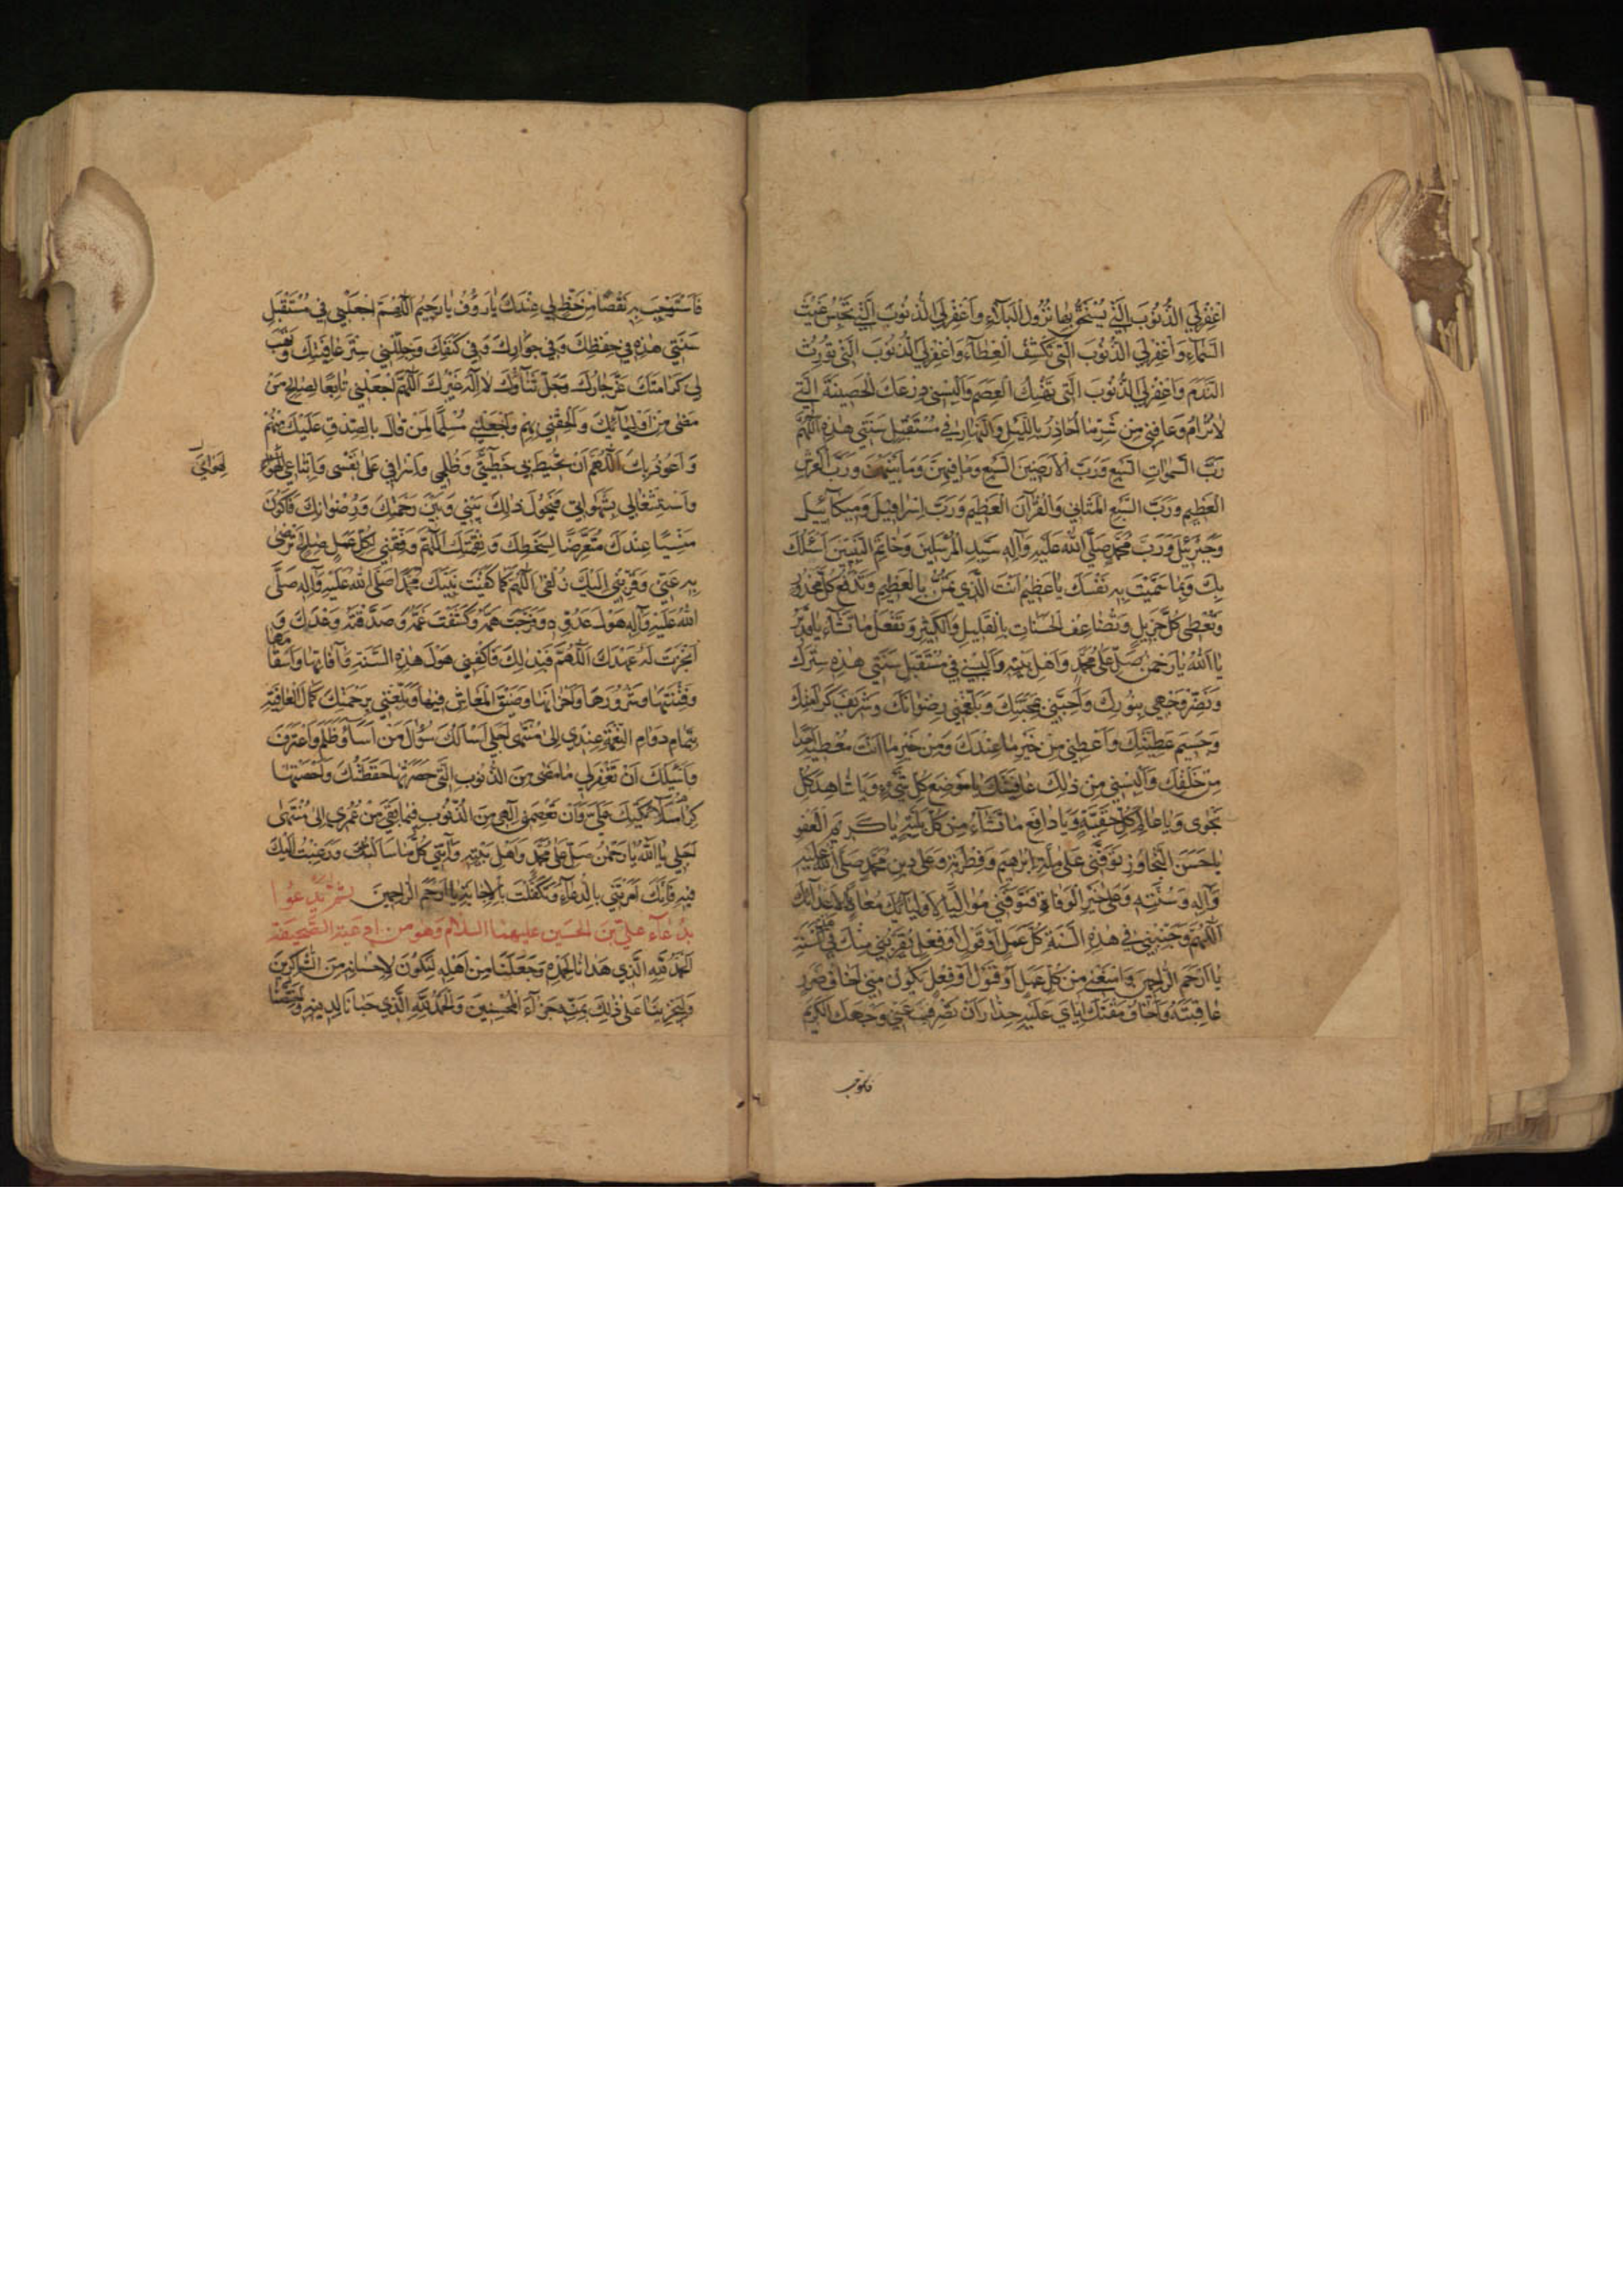 اغْفِرْ لِيَ الذُّنُوبَ الَّتي يُسْتَحَقُّ بِها نُزُولُ الْبَلآءِ وَاغْفِرْ لِيَ الذُّنُوبَ الَّتي تَحْبِسُ غَيْثَ
السَّمآءِ وَاغْفِرْ لِيَ الذُّنُوبَ الَّتي تَكْشِفُ الْغِطآءَ وَاغْفِرْ لِيَ الذُّنُوبَ الَّتي تُورِثُ
النَّدَمَ وَاغْفِرْ لِيَ الذُّنُوبَ الَّتي تَهْتِكُ الْعِصَمَ وَاَلْبِسْني دِرْعَكَ الْحَصينَةَ الَّتي
لاتُرامُ وَعافِني مِنْ شَرِّ ما اُحاذِرُ بِاللَّيْلِ وَالنَّهارِ في مُسْتَقْبِلِ سَنَتي هذِهِ اَللّهُمَّ
رَبَّ السَّمواتِ السَّبْعِ وَرَبَّ الْاَرَضينَ السَّبْعِ وَما فيهِنَّ وَما بَيْنَهُنَّ وَرَبَّ الْعَرْشِ
الْعَظيمِ وَرَبَّ السَّبْعِ الْمَثاني وَالْقُرْآنِ الْعَظيمِ وَرَبَّ اِسْرافيلَ وَميكآئيلَ
وَجَبْرَئيلَ وَرَبَّ مُحَمَّدٍ صَلَّى اللهُ عَلَيْهِ وَآلِهِ سَيِّدِ الْمُرْسَلينَ وَخاتَمِ النَّبِيّينَ اَسْئَلُكَ
بِكَ وَبِما سَمَّيْتَ بِهِ نَفْسَكَ يا عَظيمُ اَنْتَ الَّذي تَمُنُّ بِالْعَظيمِ وَتَدْفَعُ كُلَّ مَحْذُورٍ
وَتُعْطي كُلَّ جَزيلٍ وَتُضاعِفُ الْحَسَناتِ بِالْقَليلِ وَالْكَثيرِ وَتَفْعَلُ ما تَشآءُ يا قَديرُ
يا اَللهُ يا رَحْمنُ صَلِّ عَلى مُحَمَّدٍ وَاَهْلِ بَيْتِهِ وَاَلْبِسْني في مُسْتَقْبَلِ سَنَتي هذِهِ سِتْرَكَ
وَنَضِّرْ وَجْهي بِنُورِكَ وَاَحِبَّني بِمَحَبَّتِكَ وَبَلِّغْني رِضْوانَكَ وَشَريفَ كَرامَتِكَ
وَجَسيمَ عَطِيَّتِكَ وَاَعْطِني مِنْ خَيْرِ ما عِنْدَكَ وَمِنْ خَيْرِ ما اَنْتَ مُعْطيهِ اَحَدًا
مِنْ خَلْقِكَ وَاَلْبِسْني مِنْ ذلِكَ عافِيَتَكَ يا مَوْضِعَ كُلِّ شَكْوى وَيا شاهِدَ كُلِّ
نَجْوى وَيا عالِمَ كُلِّ خَفِيَّةٍ وَيا دافِعَ ما تَشآءُ مِنْ كُلِّ بَلِيَّةٍ يا كَريمَ الْعَفْوِ
يا حَسَنَ التَّجاوُزِ تَوَفَّني عَلى مِلَّةِ اِبْرهيمَ وَفِطْرَتِهِ وَعَلى دينِ مُحَمَّدٍ صَلَّى اللهُ عَلَيْهِ
وَآلِهِ وَسُنَّتِهِ وَعَلى خَيْرِ الْوَفاةِ فَتَوَفَّني مُوالِيًا لِاَوْلِيآئِكَ مُعادِيًا لِاَعْدآئِكَ
اَللّهُمَّ وَجَنِّبْني في هذِهِ السَّنَةِ كُلَّ عَمَلٍ اَوْ قَوْلٍ اَوْ فِعْلٍ يُقَرِّبُني مِنْكَ في هذِهِ السَّنَةِ
يا اَرْحَمَ الرّاحِمينَ وَامْنَعْني مِنْ كُلِّ عَمَلٍ اَوْ قَوْلٍ اَوْ فِعْلٍ يَكُونُ مِنّي اَخافُ ضَرَرَ
عاقِبَتِهِ وَاَخافُ مَقْتَكَ اِيّايَ عَلَيْهِ حِذارَ اَنْ تَصْرِفَ عَنّي وَجْهَكَ الْكَريمَ
فاستوجب
فَاَسْتَوْجِبَ بِهِ نَقْصًا مِنْ حَظٍّ لي عِنْدَكَ يا رَؤُفُ يا رَحيمُ اَللّهُمَّ اجْعَلْني في مُسْتَقْبَلِ
سَنَتي هذِهِ في حِفْظِكَ وَفي جِوارِكَ وَفي كَنَفِكَ وَجَلِّلْني سِتْرَ عافِيَتِكَ وَهَبْ
لي كَرامَتَكَ عَزَّ جارُكَ وَجَلَّ ثَنآؤُكَ لا اِلهَ غَيْرُكَ اَللّهُمَّ اجْعَلْني تابِعًا لِصالِحِ مَنْ
مَضى مِنْ اَوْلِيآئِكَ وَاَلْحِقْني بِهِمْ وَاجْعَلْني مُسَلِّمًا لِمَنْ قالَ بِالصِّدْقِ عَلَيْكَ مِنْهُمْ
وَاَعُوذُ بِكَ اَللّهُمَّ اَنْ تُحيطَ بي خَطيئَتي وَظُلْمي وَاِسْرافي عَلى نَفْسي وَاتِّباعي لِهَوايَ
لِهَوايَ
وَاشْتِغالي بِشَهَواتي فَيَحُولَ ذلِكَ بَيْني وَبَيْنَ رَحْمَتِكَ وَرِضْوانِكَ فَاَكُونَ
مَنْسِيًّا عِنْدَكَ مُتَعَرِّضًا لِسَخَطِكَ وَنِقْمَتِكَ اَللّهُمَّ وَفِّقْني لِكُلِّ عَمَلٍ صالِحٍ تَرْضى
بِهِ عَنّي وَقَرِّبْني اِلَيْكَ زُلْفى اَللّهُمَّ كَما كَفَيْتَ نَبِيَّكَ مُحَمَّدًا صَلَّى اللهُ عَلَيْهِ وَآلِهِ صَلَّى
اللهُ عَلَيْهِ وَآلِهِ هَوْلَ عَدُوِّهِ وَفَرَّجْتَ هَمَّهُ وَكَشَفْتَ غَمَّهُ وَصَدَقْتَهُ وَعْدَكَ وَ
اَنْجَزْتَ لَهُ عَهْدَكَ اَللّهُمَّ فَبِذلِكَ فَاكْفِني هَوْلَ هذِهِ السَّنَةِ وَآفاتِها وَاَسْقامَها
وَفِتْنَتَها وَشُرُورَها وَاَحْزانَها وَضيقَ الْمَعاشِ فيها وَبَلِّغْني بِرَحْمَتِكَ كَمالَ الْعافِيَةِ
بِتَمامِ دَوامِ النِّعْمَةِ عِنْدي اِلى مُنْتَهى اَجَلي اَسْاَلُكَ سُؤالَ مَنْ اَسآءَ وَظَلَمَ وَاعْتَرَفَ
وَاَسْئَلُكَ اَنْ تَغْفِرَ لي ما مَضى مِنَ الذُّنُوبِ الَّتي حَصَرَتْها حَفَظَتُكَ وَاَحْصَتْها
كِرامُ مَلآئِكَتِكَ عَلَيَّ وَاَنْ تَعْصِمَني اِلهي مِنَ الذُّنُوبِ فيما بَقِيَ مِنْ عُمُري اِلى مُنْتَهى
اَجَلي يا اَللهُ يا رَحْمنُ صَلِّ عَلى مُحَمَّدٍ وَاَهْلِ بَيْتِهِ وَآتِني كُلَّ ما سَاَلْتُكَ وَرَغِبْتُ اِلَيْكَ
فيهِ فَاِنَّكَ اَمَرْتَني بِالدُّعآءِ وَتَكَفَّلْتَ بِالْاِجابَةِ يا اَرْحَمَ الرّاحِمينَ ثُمَّ تَدْعُوا
بِدُعآءِ عَلِيِّ بْنِ الْحُسَيْنِ عليهما السلام وَهُوَ مِنْ اَدْعِيَةِ الصَّحيفَةِ
اَلْحَمْدُ لِلّهِ الَّذي هَدانا لِحَمْدِهِ وَجَعَلَنا مِنْ اَهْلِهِ لِنَكُونَ لِاِحْسانِهِ مِنَ الشّاكِرينَ
وَلِيَجْزِيَنا عَلى ذلِكَ جَزآءَ الْمُحْسِنينَ وَالْحَمْدُ لِلّهِ الَّذي حَبانا بِدينِهِ وَاخْتَصَّنا